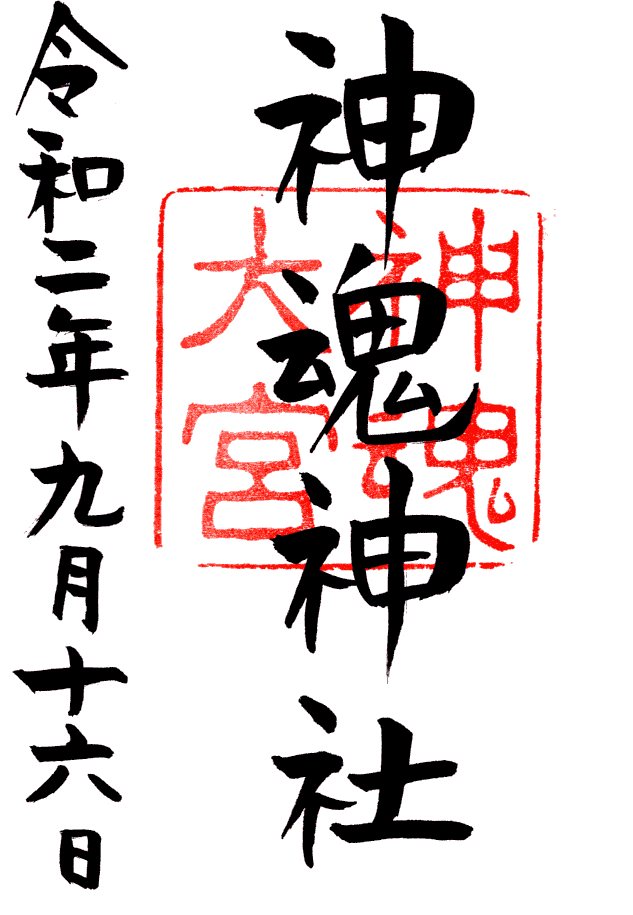 神魂神社
神魂
大宮
令和二年九月十六日